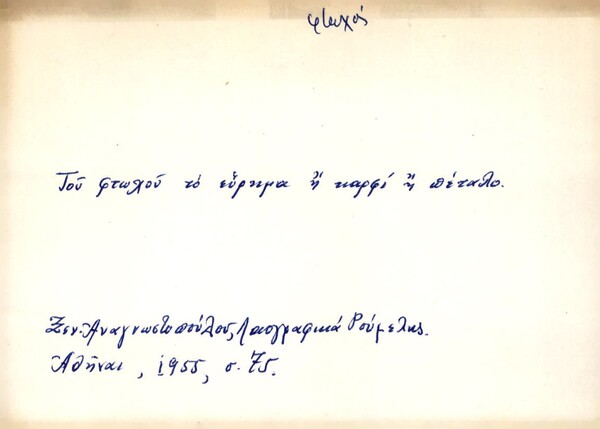 φτωχός
Τοῦ φτωχοῦ τὸ εὕρημα ἢ καρφί ἢ πέταλο.
Ξεν. Ἀναγνωστοπούλου, Λαογραφικά Ρούμελης.
Ἀθῆναι, 1955, σ. 75.